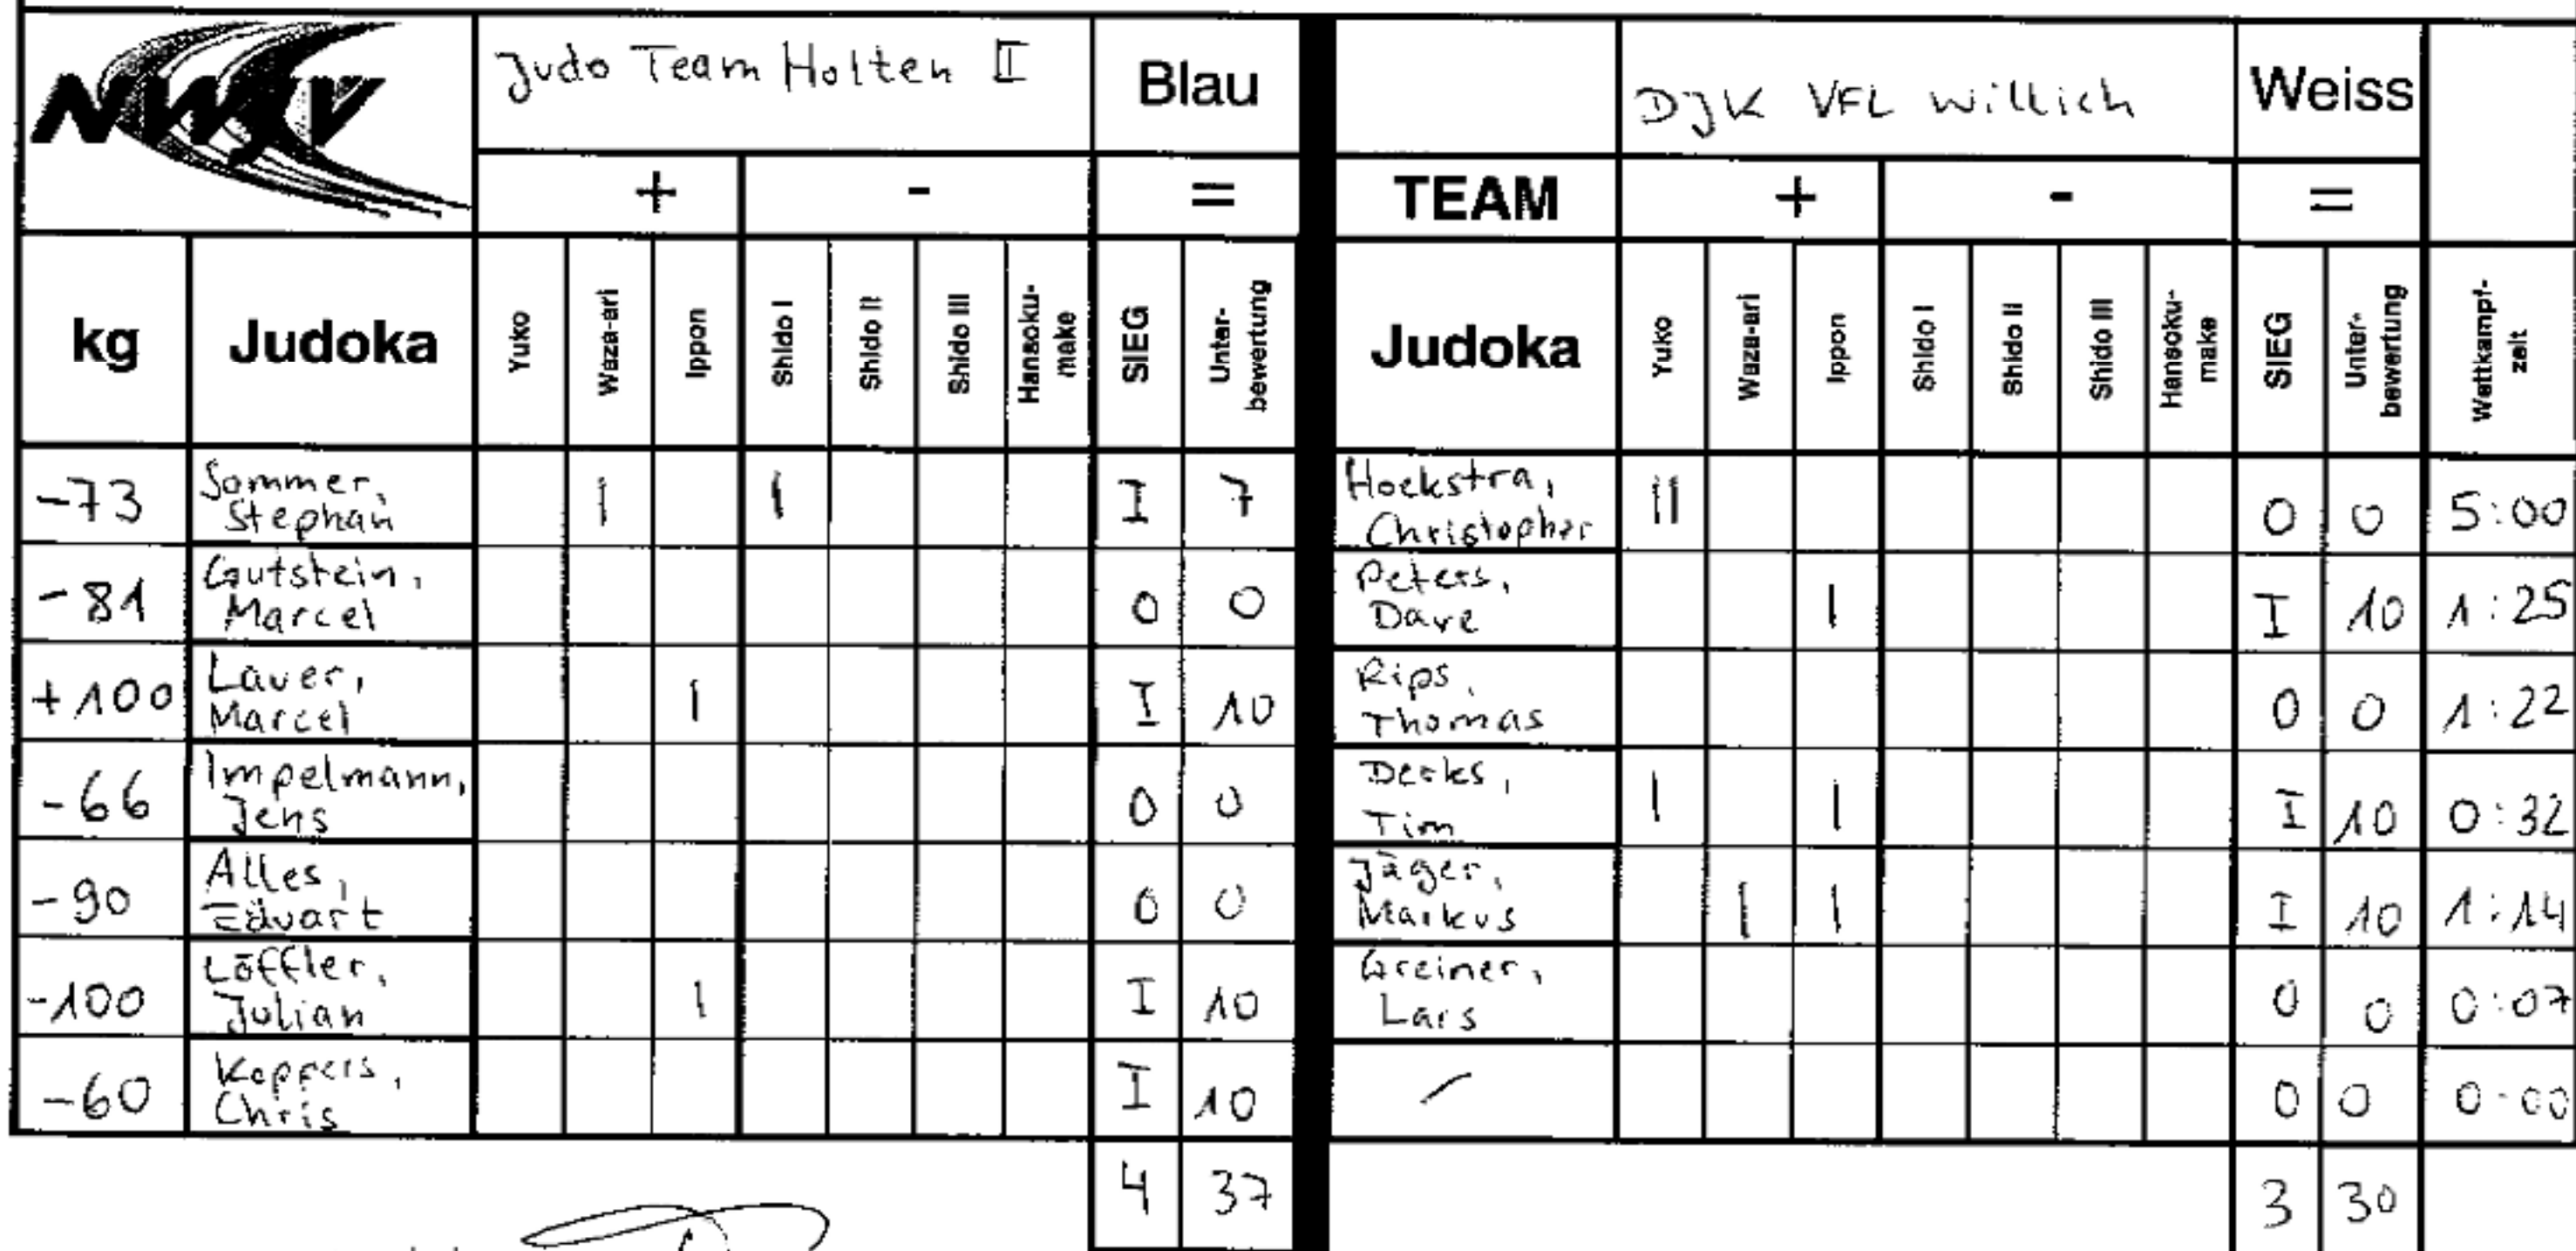 NWJV Judo Team Holten II Blau DJK VFL Willich Weiss
+ - = TEAM + - =
kg Judoka Yuko Waza-ari Ippon Shido I Shido II Shido III Hansoku-make SIEG Unter-bewertung Judoka Yuko Waza-ari Ippon Shido I Shido II Shido III Hansoku-make SIEG Unter-bewertung Wettkampf-zeit
-73 Sommer, Stephan I I I 7 Hoekstra, Christopher II 0 0 5:00
-81 Gutstein, Marcel 0 0 Peters, Dave I I 10 1:25
+100 Lauer, Marcel I I 10 Rips, Thomas 0 0 1:22
-66 Impelmann, Jens 0 0 Derks, Tim I I I 10 0:32
-90 Alles, Eduart 0 0 Jäger, Markus I I I 10 1:14
-100 Löffler, Julian I I 10 Greiner, Lars 0 0 0:07
-60 Koppers, Chris I 10 / 0 0 0-00
4 37 3 30